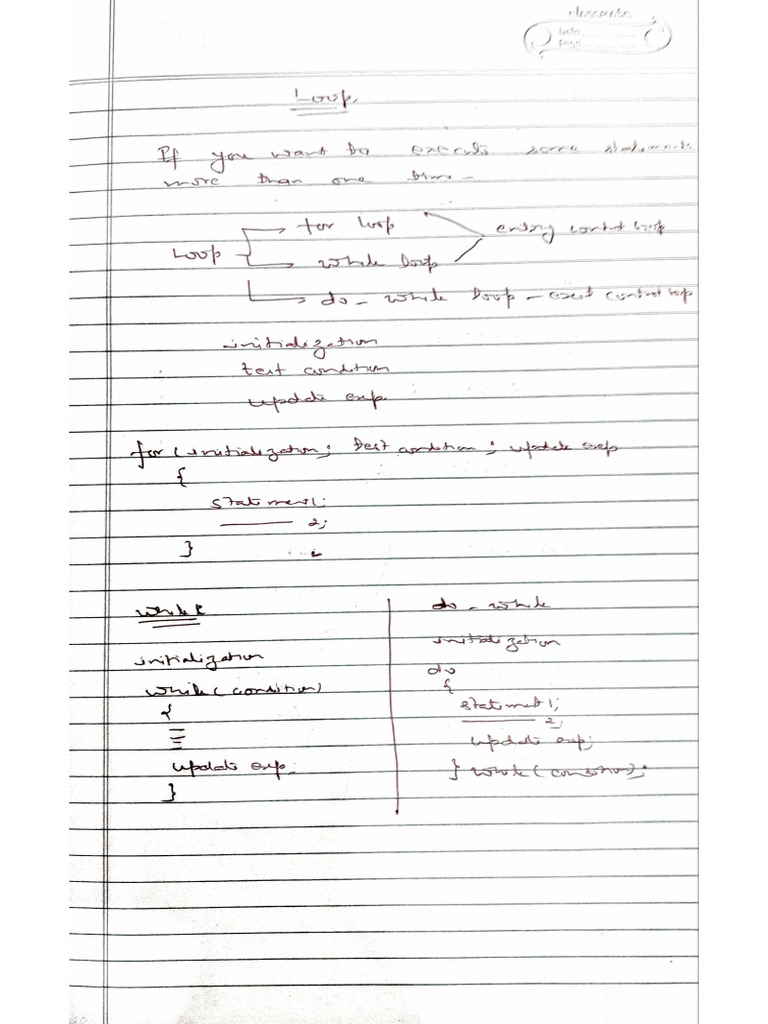 classmate
Date
Page
Loop
If you want to execute some statements
more than one time -
for loop
entry control loop
Loop
while loop
do - while loop - exit control loop
initialization
test condition
update exp.
for (initialization; test condition; update exp
{
statement1;
2;
}
while
initialization
while (condition)
{
update exp.
}
do - while
initialization
do
{
statement1;
2;
update exp;
} while (condition);